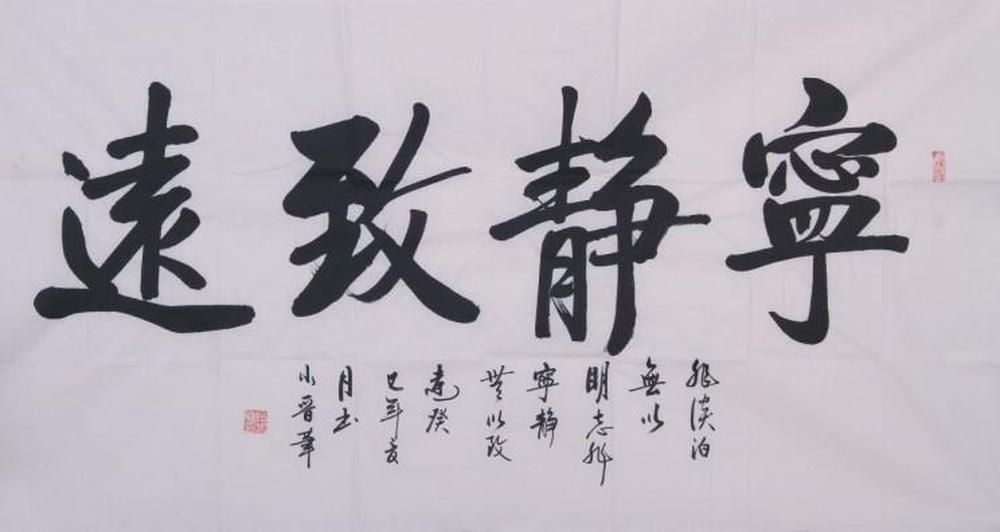 寧静致遠
非淡泊
無以
明志非
寧静
無以致
遠癸
巳年夏
月书
小晋